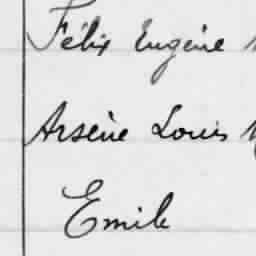 Félix Eugène
Arsène Louis
Emile